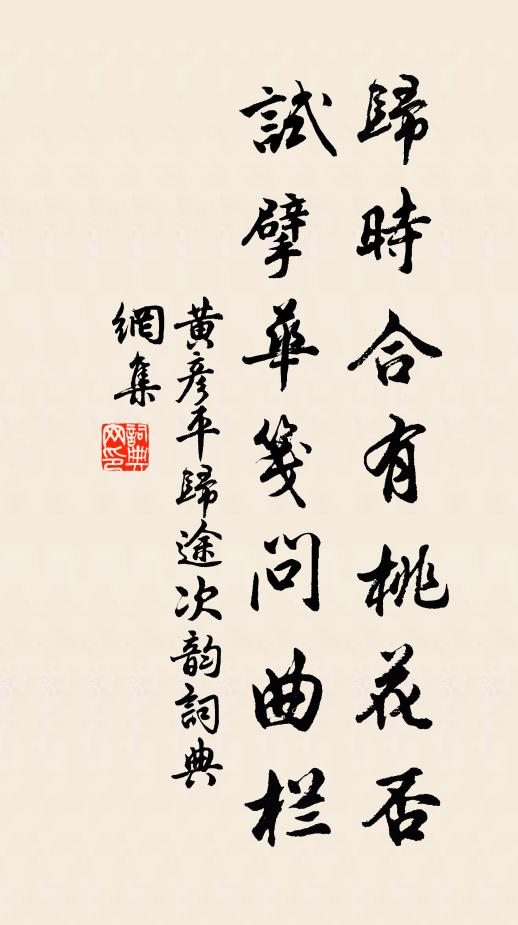 歸時合有桃花否
試擘華箋問曲栏
黄彦平歸途次韵詞典
網集
詞典
网印